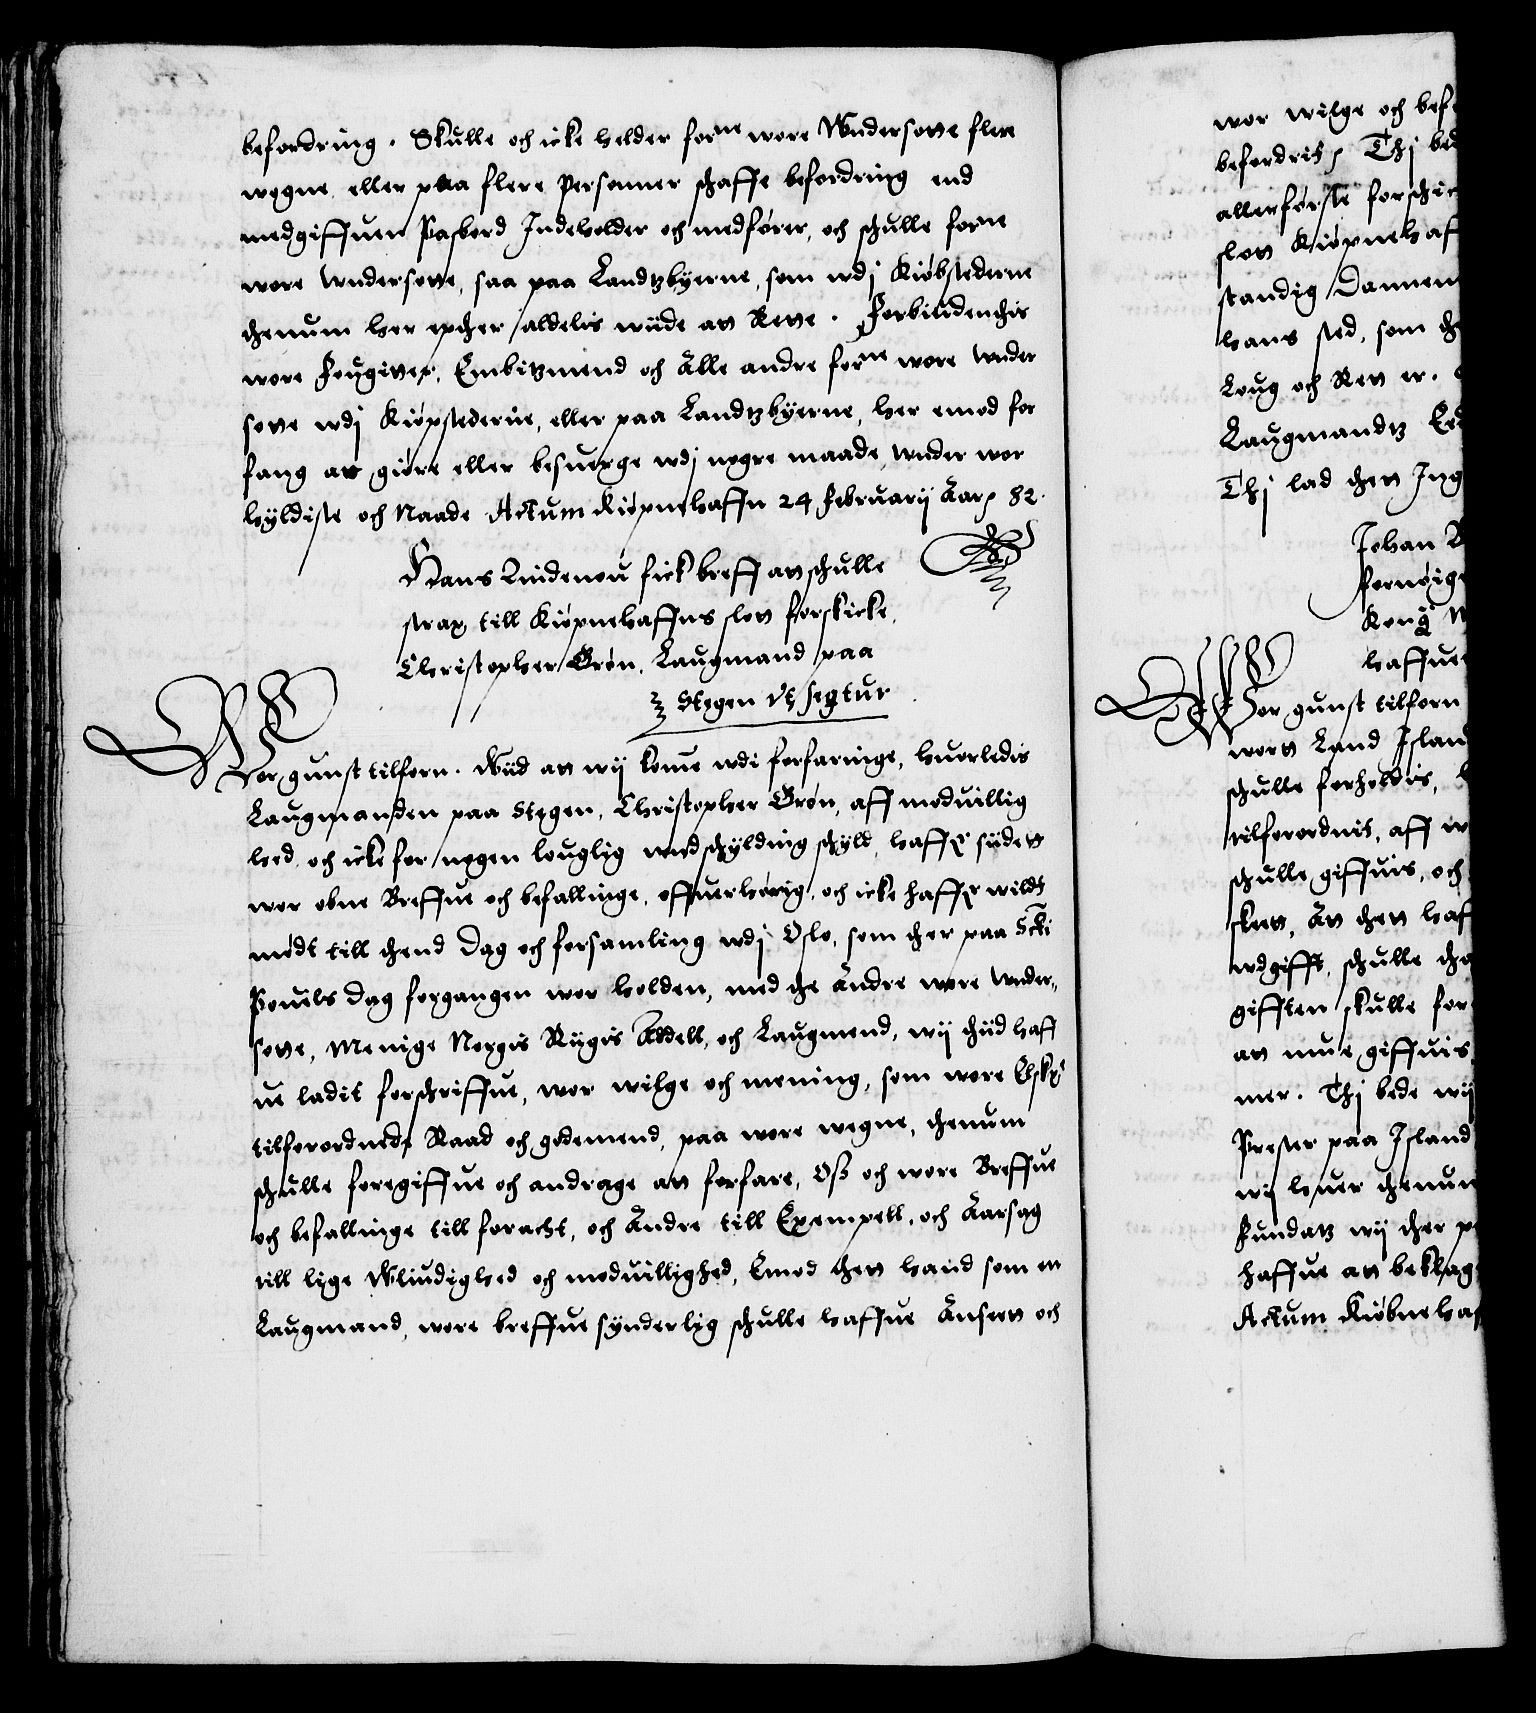 befordring. Skulle och icke helder forne wore Wndersotte flere
wegne eller paa flere Personner schaffe befordring end
medgiffuen Pasbord Indeholder och medfører, och schulle forne
wore wndersotte, saa paa Landtzbyerne, som wdj Kiøbstederne
thenum her epther aldelis wiide att Rette. Forbiudendhis
wore Fougitter, Embitzmend och Alle andre forne wore wnder
sotte wdj Kiøpstederne, eller paa Landtzbyerne, her emod for
fang att giøre eller besuerge wdj nogre maade, wnder wor
hyldiste och Naade Actum Kiøpnehaffn 24 Februarij Aar 82.
Hans Lindenou fick breff att schulle
strax till Kiøpnehaffns slott forskicke,
Christopher Grøn, Laugmand paa
Stegen vt seqtur
Wor gunst tilforn. Wiid att wij kome wdi forfaringe, huorledis
Laugmanden paa Stegen, Christopher Grøn, aff moduillig
hed och icke for nogen louglig wndschylding schyld, haffr siidett
wor obne Breffue och befallinge, offuerhørig, och icke haffr wildt
mødt till thend Dag och forsamling wdj Oslo, som ther paa Scti
Pouels dag forgangen wor holden, med the Andre wore wnder,
sotte, Menige Norgis Riigis Addell, och Laugmend, wij thiid haff
ue ladit forschriffue, wor wilge och mening, som wore Elskr
tilforordnede Raad och godemend, paa wore wegne, thenum
schulle foregiffue och andrage att forfare, Oss och wore Breffue
och befallinge till foracht, och Andre till Exempell, och Aarsag
till lige Wliudighed och moduillighed, Emod then haand som en
Laugmand, wore breffue synderlig schulle haffue Anseett och
wor wilge och bef
befordrit, Thj bed
allerførste forschic
slott Kiøpnehaf
standig Dannem
hans sted, som th
Loug och Rett er.
Laugmandtz Eed
Thj lad thett Ing
Johan B
fornøige
Kong: M
haffue
Wor gunst tilforn
wort Land Island
schulle forholdis,
tilforordnit, aff w
schulle giffuis, och
skett, Att thett haf
wdgifft, schulle tha
gifften skulle for
att mue giffuis
mer. Thj bede wij
Prester paa Island
wij huer thenum
Fundatz wij ther p
haffue att beklag
Actum Kiøbnehaf